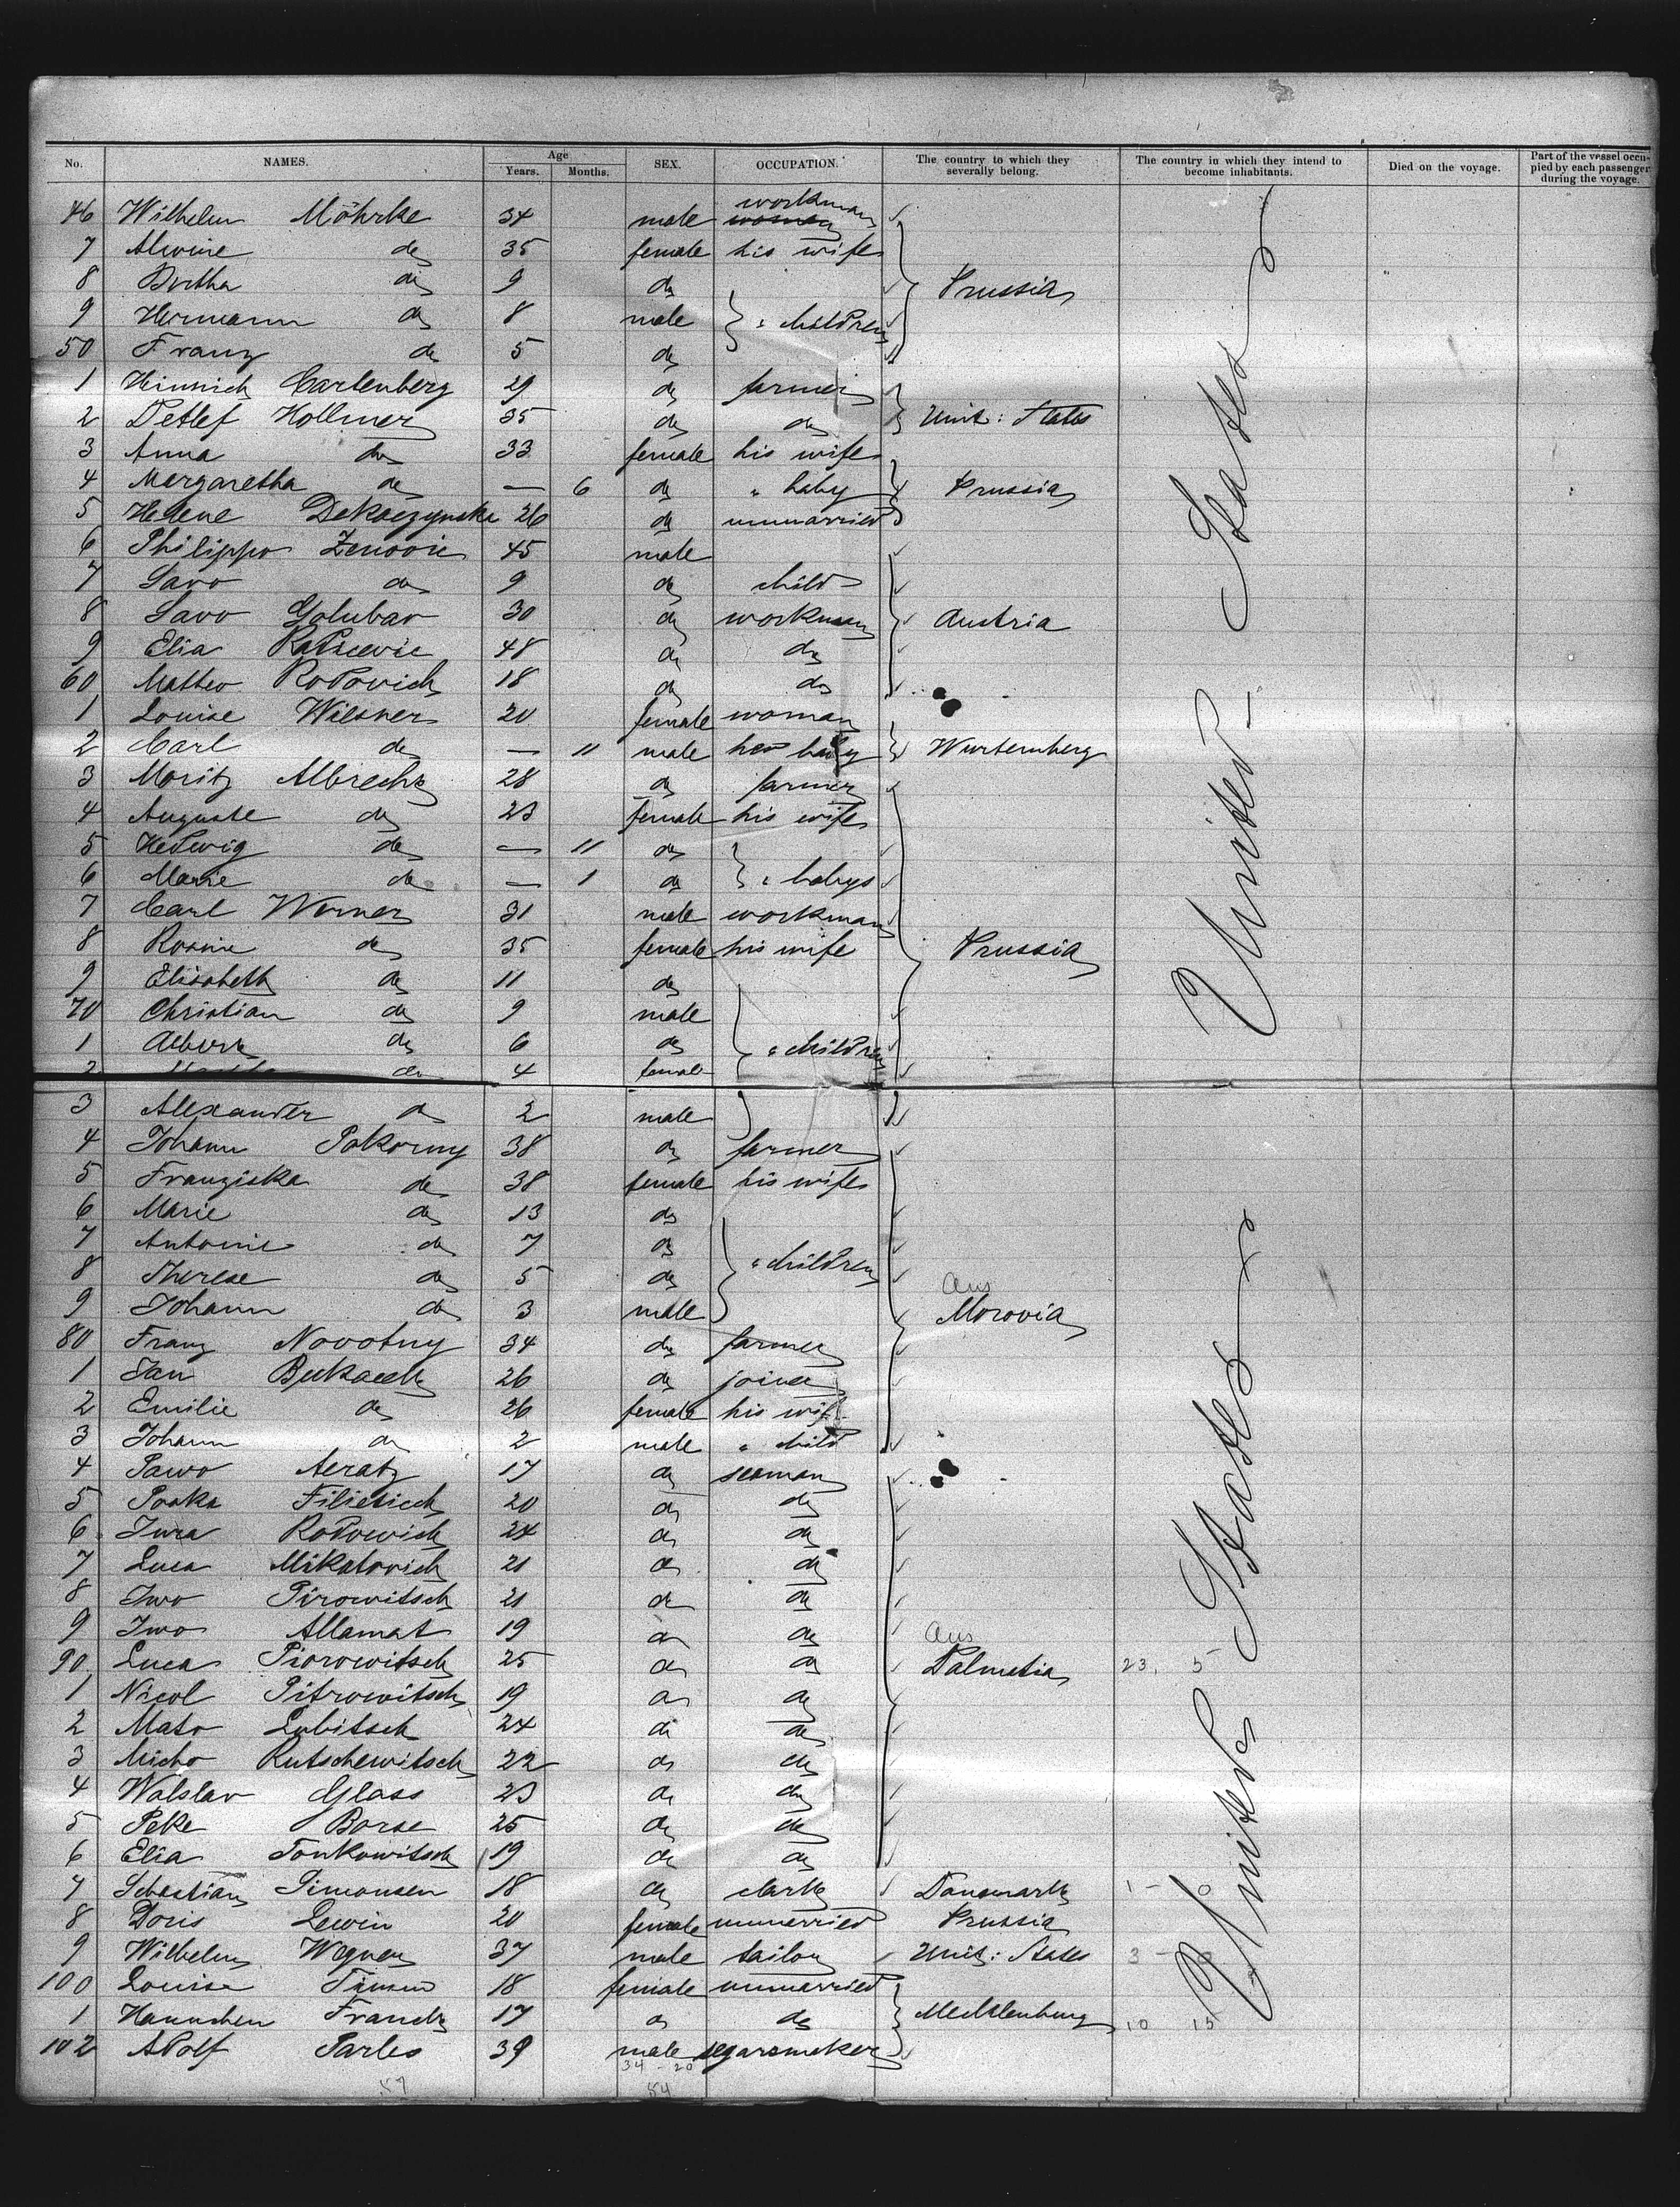 No. NAMES. Age Years. Months. SEX. OCCUPATION. The country to which they severally belong. The country in which they intend to become inhabitants. Died on the voyage. Part of the vessel occupied by each passenger during the voyage.
workman
46 Wilhelm Möhrke 34 male woman
7 Alwine do 35 female his wife
8 Bertha do 9 do Prussia
9 Hermann do 8 male " children
50 Franz do 5 do
1 Heinrich Cartenberg 29 do farmer
2 Detlef Hollmer 35 do do Unit: States
3 Anna do 33 female his wife
4 Margaretha do — 6 do " baby Prussia
5 Helene 26 do unmarried
6 Philippo Zenovic 45 male
7 Savo do 9 do child
8 Savo Golubav 30 do workman Austria
9 Elia 48 do do
60 Matteo Rodovich 18 do do
1 Louise Wilsner 20 female woman
2 Carl do — 11 male her baby Wurtemberg
3 Moritz Albrecht 28 do farmer
4 Auguste do 23 female his wife
5 Hedwig do — 11 do
6 Marie do — 1 do " babys
7 Carl Werner 31 male workman
8 Rosine do 35 female his wife Prussia
9 Elisabeth do 11 do
70 Christian do 9 male
1 Albert do 6 do " children
2 do 4 female
United States
3 Alexander do 2 male
4 Johann Pokorny 38 do farmer
5 Franziska do 38 female his wife
6 Marie do 13 do
7 Antonie do 7 do
8 Therese do 5 do " children Aus
9 Johann do 3 male Morovia
80 Franz Novotny 34 do farmer
1 Jan 26 do joiner
2 Emilie do 26 female his wife
3 Johann do 2 male " child
4 Sawo 17 do seaman
5 20 do do
6 Jura Rodowich 24 do do
7 Luca Mikatovich 21 do do
8 Iwo Pirowitsch 21 do do
9 Iwo Allamat 19 do do Aus
90 Luca Piorowitsch 25 do do Dalmatia 23. 5
1 Nicol Pitrowitsch 19 do do
2 Mato Lubitsch 24 do do
3 Micho Rutschewitsch 22 do do
4 Walslav Glass 23 do do
5 Peke Borse 25 do do
6 Elia Tonkowitsch 19 do do
7 Sebastian Simonsen 18 do clark Danemark 1 — 0
8 Doris Lewin 20 female unmerried Prussia
9 Wilhelm Wegner 37 male tailor Unit: States 3 — 0
100 Louise Timm 18 female unmarried
1 Hannchen Franck 17 do do Mecklenburg 10 15
102 Adolf Parles 39 male segarsmeker
34 - 20
57 54
United States